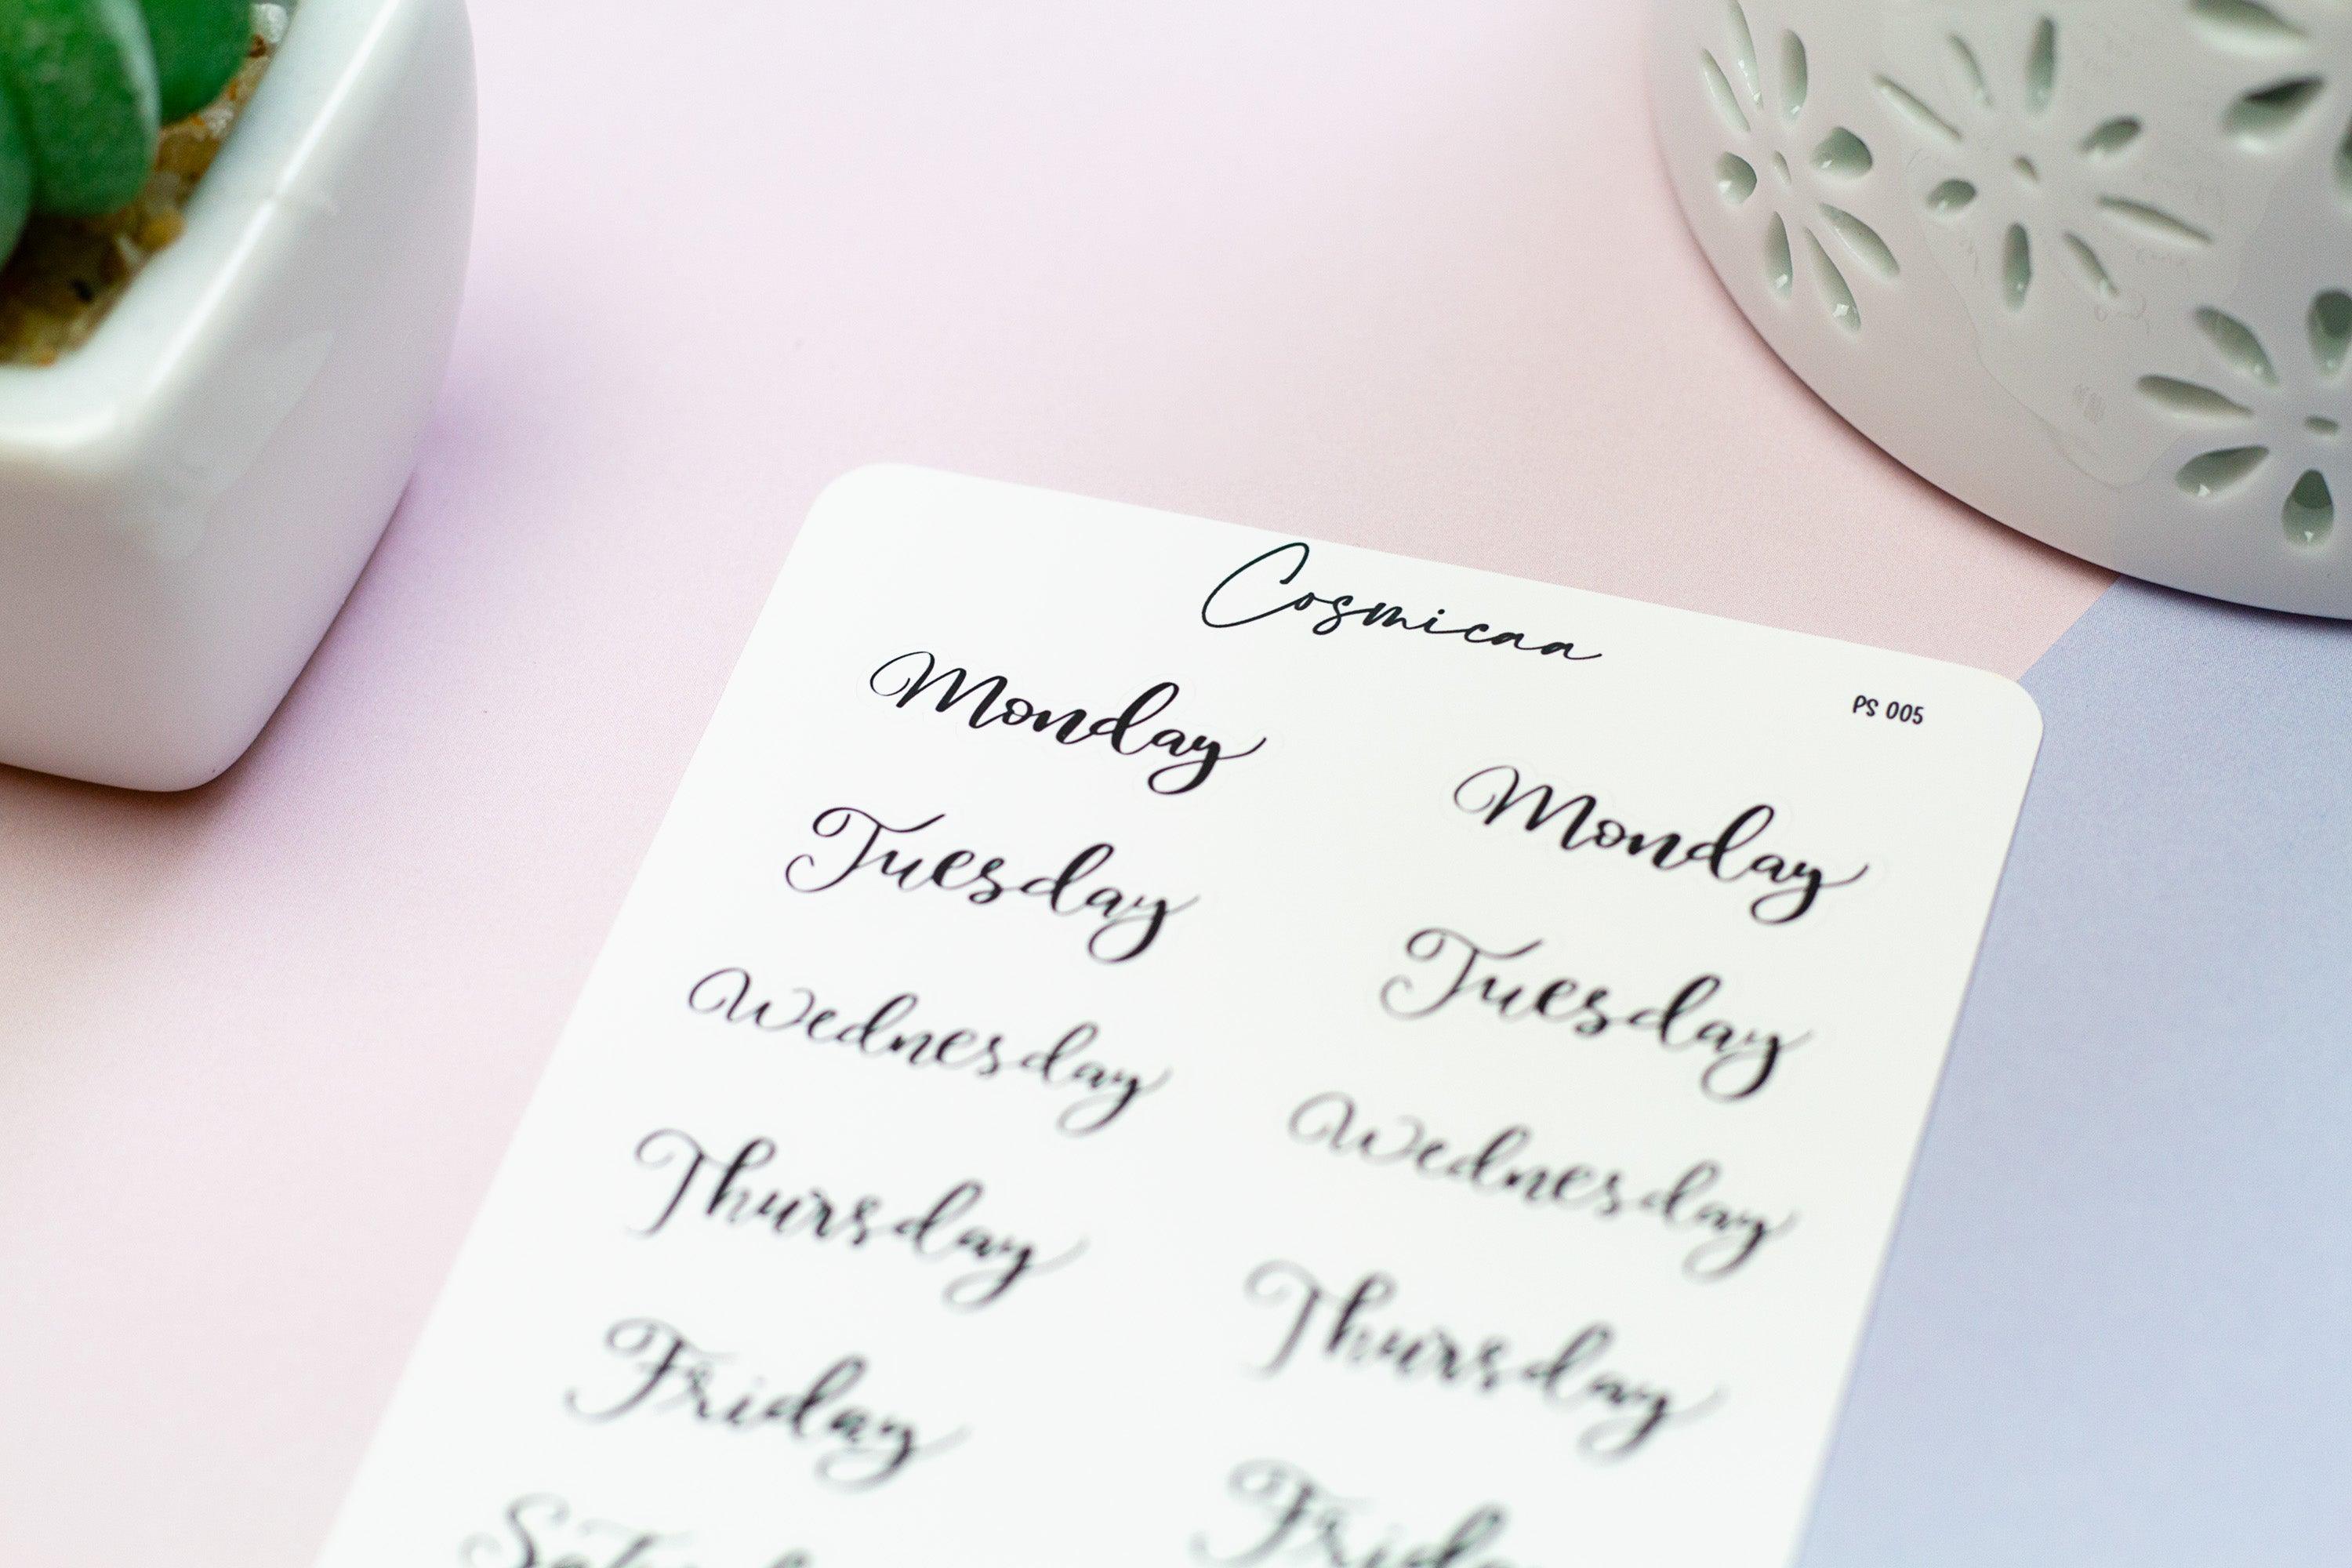 Cosmicaa
PS 005
Monday Monday
Tuesday Tuesday
Wednesday Wednesday
Thursday Thursday
Friday Friday